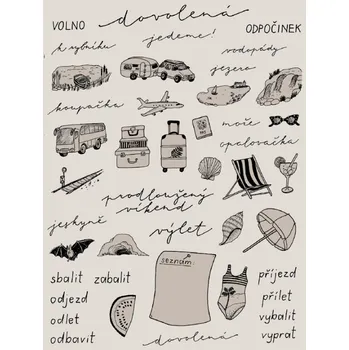 VOLNO
dovolená
ODPOČINEK
k rybníku
jedeme!
vodopády
jezero
koupačka
moře
opalovačka
prodloužený
víkend
jeskyně
výlet
seznam
sbalit zabalit
příjezd
odjezd
přílet
odlet
vybalit
odbavit
dovolená
vyprat